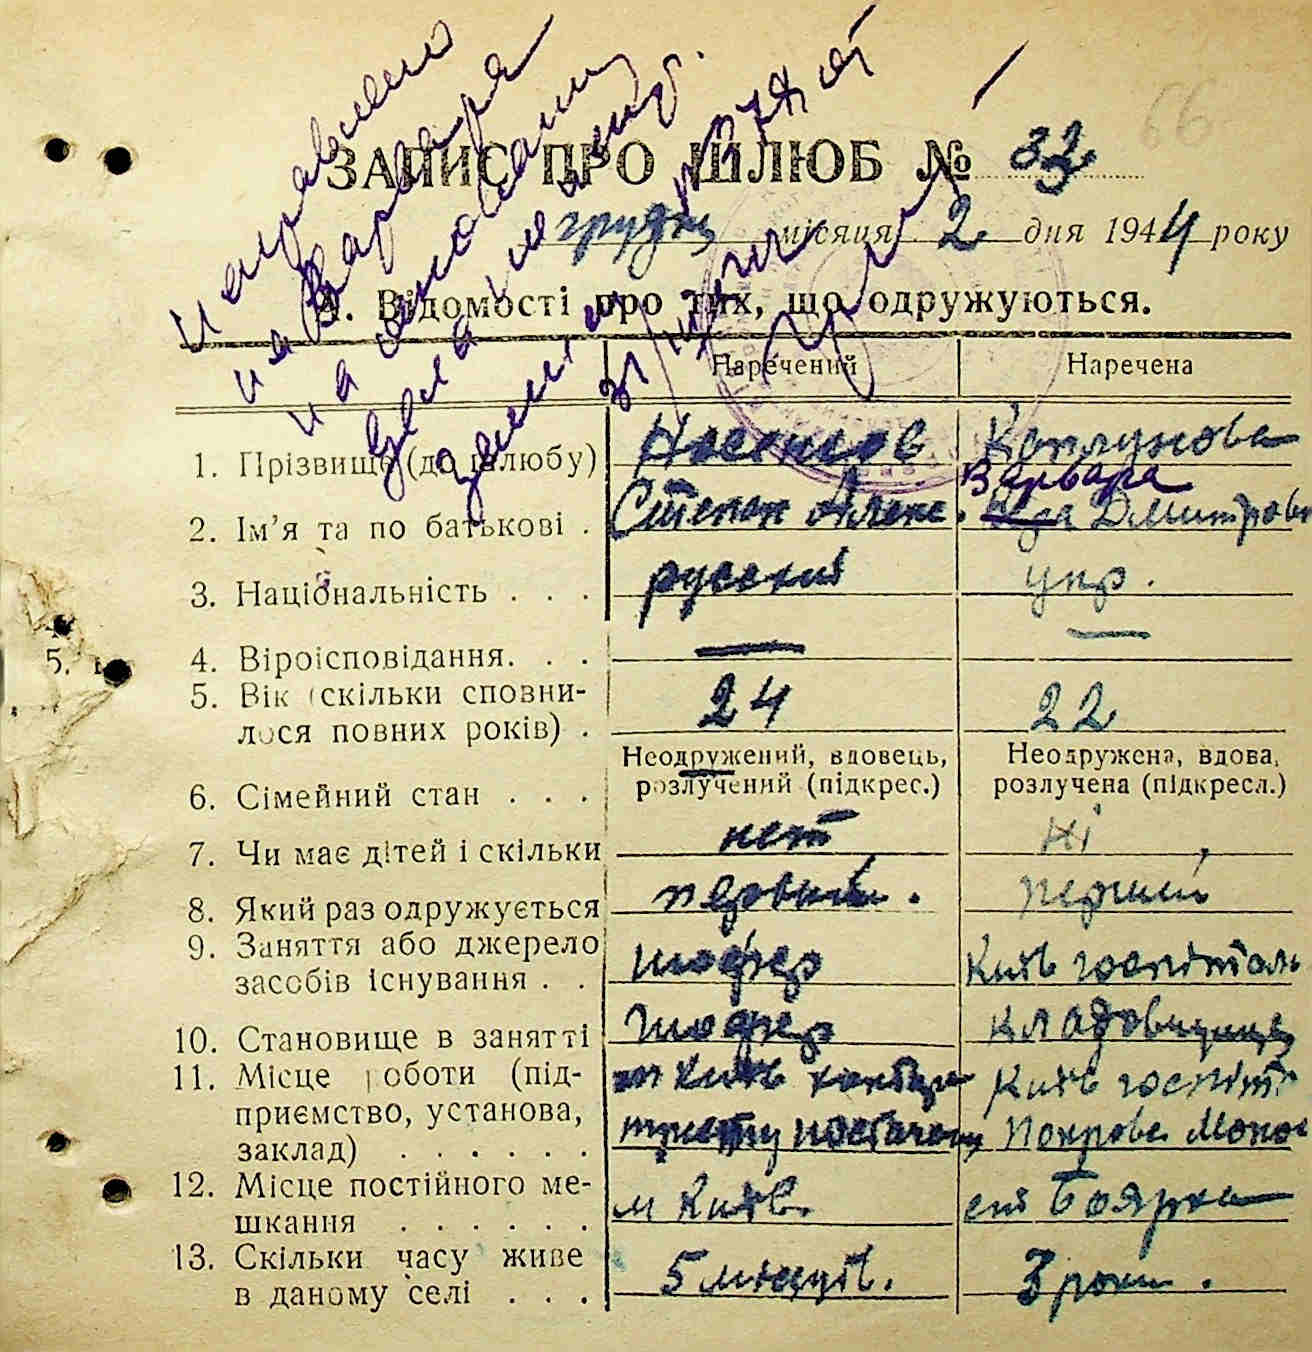 Направлено
на Варвара
на основании
66
ЗАПИС ПРО ШЛЮБ № 32
грудня місяця 2 дня 1944 року
А. Відомості про тих, що одружуються.
Наречений Наречена
1. Прізвище (до шлюбу) Носонов Коплунова
Варвара
2. Ім'я та по батькові . Степан Алекс. Дмитрівн
3. Національність . . . русский укр.
4. Віроісповідання. . . — —
5. Вік (скільки сповни-
лося повних років) . 24 22
Неодружений, вдовець, Неодружена, вдова,
6. Сімейний стан . . . розлучений (підкрес.) розлучена (підкресл.)
7. Чи має дітей і скільки нет Ні
8. Який раз одружується первый. перший
9. Заняття або джерело
засобів існування . . шофер Київ госпіталь
10. Становище в занятті шофер кладовщице
11. Місце роботи (під- Київ Київ госпіт
приємство, установа, тресту постачання Покровс. Мона
заклад) . . . . . .
12. Місце постійного ме-
шкання . . . . . . м Київ. Боярка
13. Скільки часу живе
в даному селі . . . 5 місяців. 3 роки.